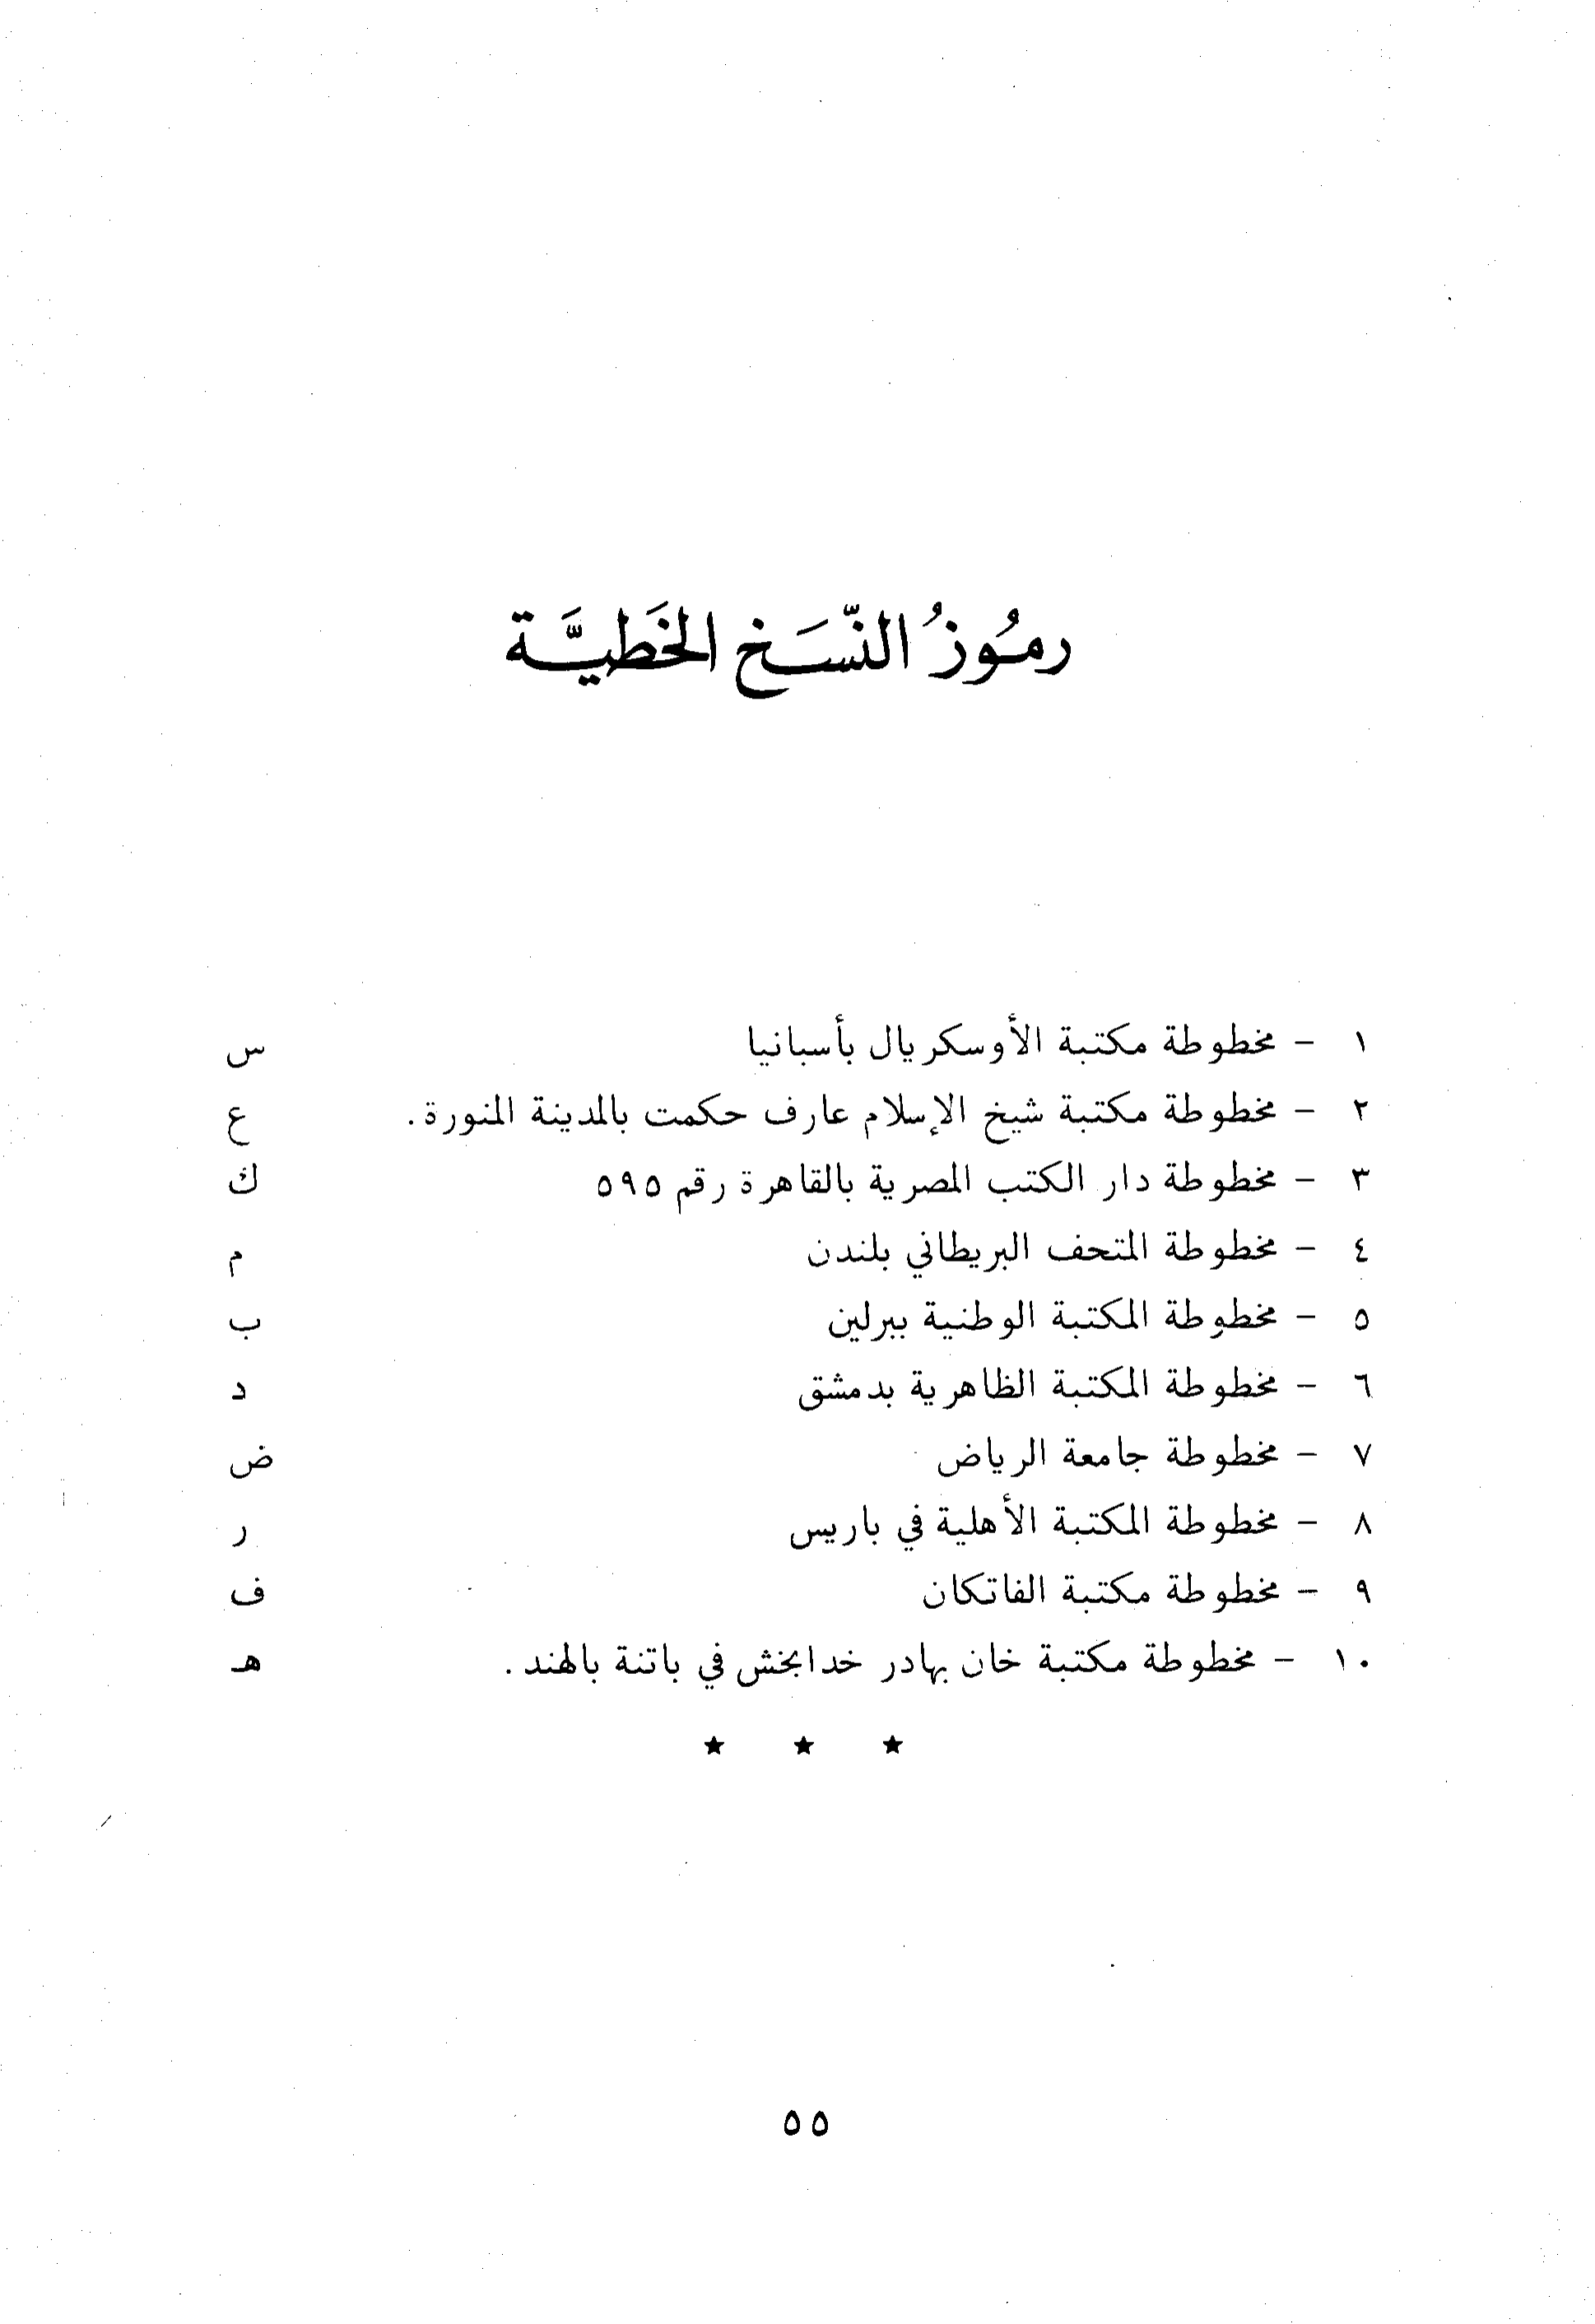 رمُوزُ النّسَخ الخَطيَّة
١ - مخطوطة مكتبة الأوسكريال بأسبانيا س
٢ - مخطوطة مكتبة شيخ الإسلام عارف حكمت بالمدينة المنورة. ع
٣ - مخطوطة دار الكتب المصرية بالقاهرة رقم ٥٩٥ ك
٤ - مخطوطة المتحف البريطاني بلندن م
٥ - مخطوطة المكتبة الوطنية ببرلين ب
٦ - مخطوطة المكتبة الظاهرية بدمشق د
٧ - مخطوطة جامعة الرياض ض
٨ - مخطوطة المكتبة الأهلية في باريس ر
٩ - مخطوطة مكتبة الفاتكان ف
١٠ - مخطوطة مكتبة خان بهادر خدابخش في باتنة بالهند. هـ
★ ★ ★
٥٥